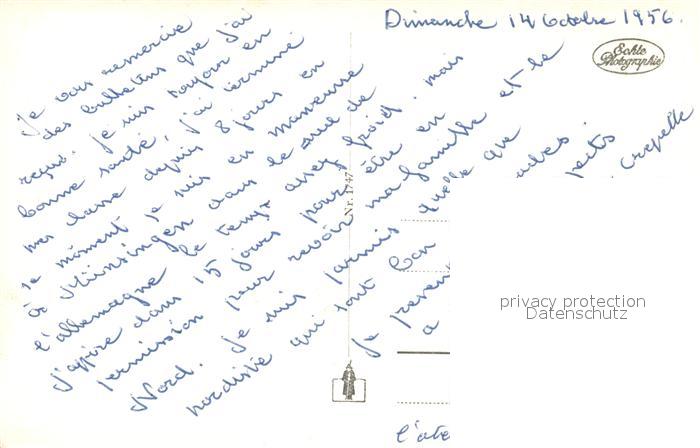 Dimanche 14 Octobre 1956.
Echte
Photographie
Je vous remercie
des bulletins que j'ai
reçus. je suis toujour en
bonne santé, j'ai terminé
mes classe depuis 8 jours en
se moment je suis en manœuvre
à Münsingen dans le sud de
l'allemagne le temps assez froid. mais
j'espère dans 15 jours pour être en
permission pour revoir ma famille et le
Nord. Je suis parmis quelle que
nordiste qui sont bon
Je
petits
a
crepelle
Nr. 1747
privacy protection
Datenschutz